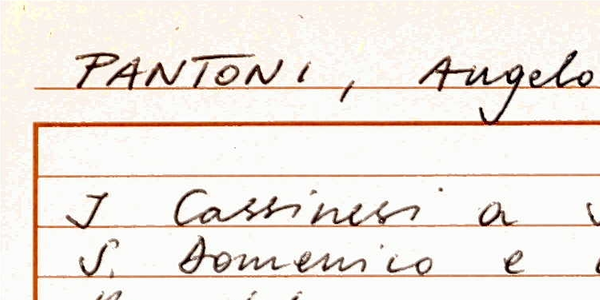 PANTONI, Angelo
I Cassinesi a
S. Domenico e